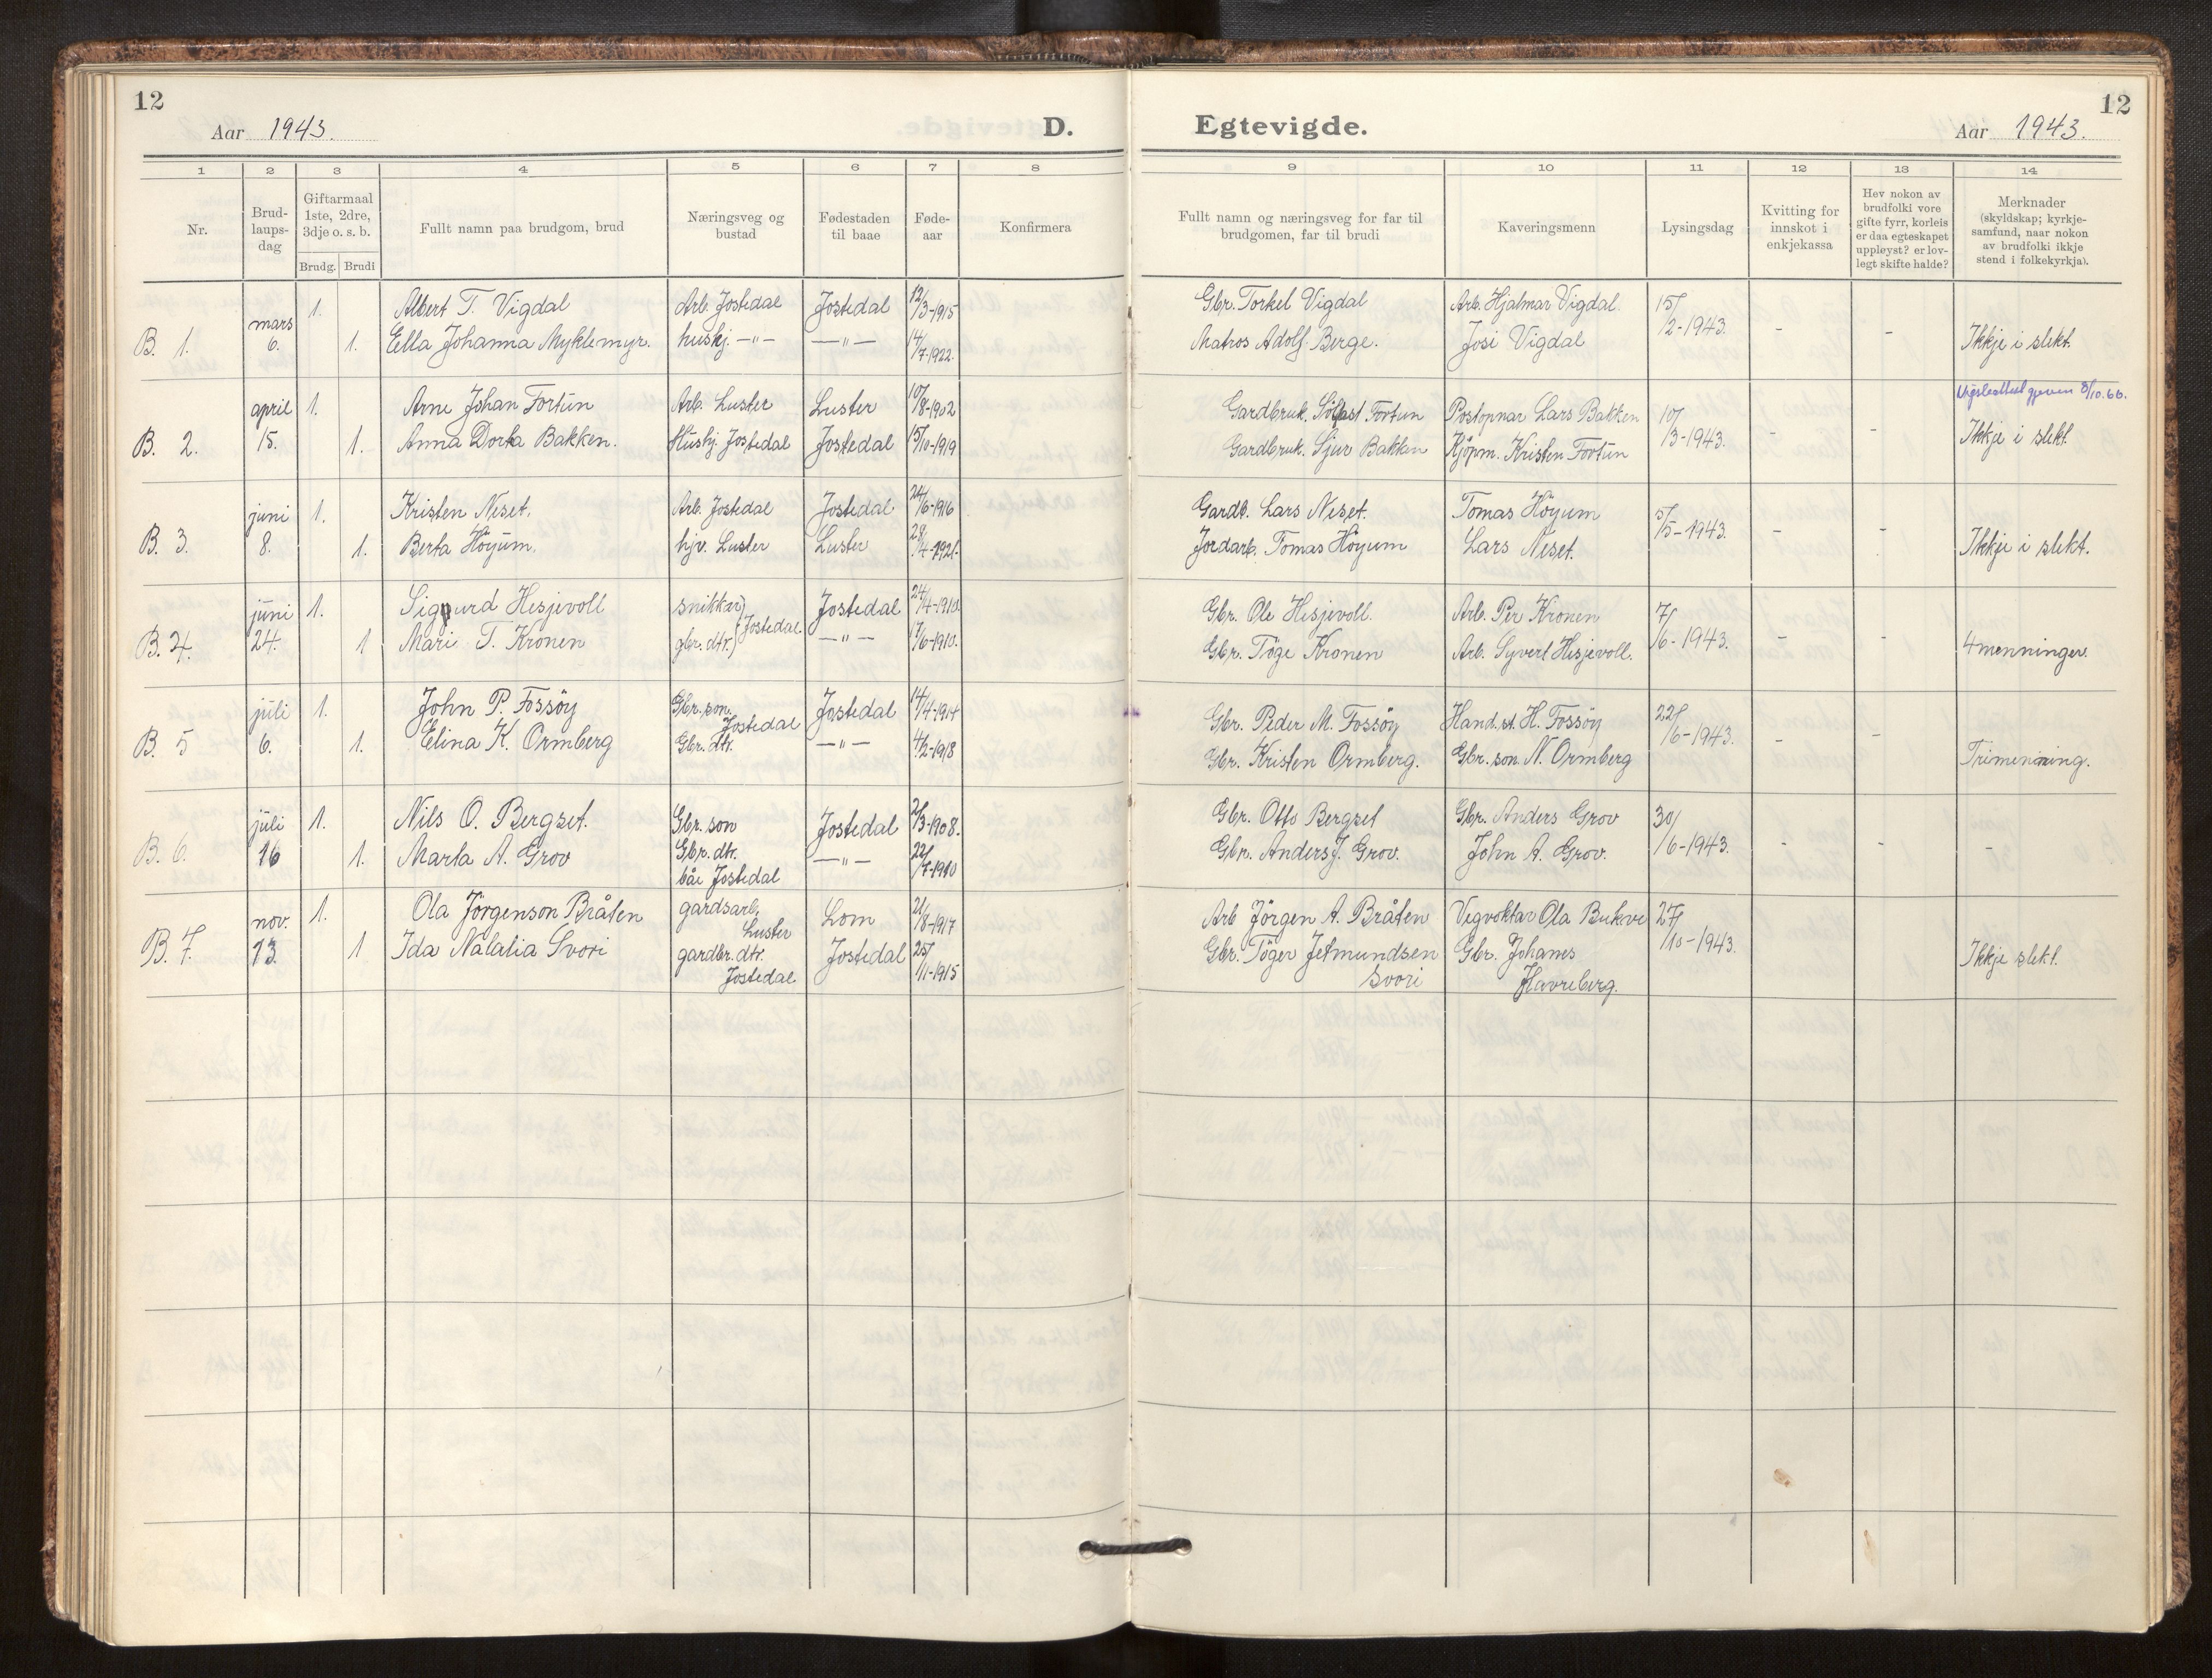 12
Aar 1943.
D.
Egtevigde.
12
Aar 1943.
1 2 3 4 5 6 7 8 9 10 11 12 13 14
Nr.
Brud-
laups-
dag
Giftarmaal
1ste, 2dre,
3dje o. s. b.
Brudg. Brudi
Fullt namn paa brudgom, brud
Næringsveg og
bustad
Fødestaden
til baae
Føde-
aar
Konfirmera
Fullt namn og næringsveg for far til
brudgomen, far til brudi
Kaveringsmenn
Lysingsdag
Kvitting for
innskot i
enkjekassa
Hev nokon av
brudfolki vore
gifte fyrr, korleis
er daa egteskapet
uppløyst? er lov-
legt skifte halde?
Merknader
(skyldskap; kyrkje-
samfund, naar nokon
av brudfolki ikkje
stend i folkekyrkja).
mars 1. Albert T. Vigdal Arb. Jostedal Jostedal 12/3-1915 Gbr. Torkel Vigdal Arb. Hjalmar Vigdal. 15/2-1943. - -
B. 1. 6. 1. Ella Johanna Myklemyr. huskj. —"— —"— 14/7-1922. Matros Adolf Berge. Josi Vigdal Ikkje i slekt.
Vigsleattest gjeven 8/10.66.
april 1. Arne Johan Fortun Arb. Luster Luster 10/8-1902 Gardbruk. Sjfast Fortun Postopnar Lars Bakken 10/3-1943. - -
B. 2. 15. 1. Anna Dorta Bakken. Huskj. Jostedal Jostedal 15/10-1919 Gardbruk. Sjur Bakken Kjöpm. Kristen Fortun Ikkje i slekt.
juni 1. Kristen Neset. Arb. Jostedal Jostedal 24/6-1916 Gardb. Lars Neset. Tomas Höyum 5/5-1943. - -
B. 3. 8. 1. Berta Höyum. hjv. Luster Luster 28/4-1921. Jordarb. Tomas Höyum Lars Neset. Ikkje i slekt.
juni 1. Sigurd Hesjevoll snikkar) Jostedal 24/4-1910. Gbr. Ole Hesjevoll. Arb. Per Kronen 7/6-1943. - -
Jostedal.
B. 4. 24. 1 Mari T. Kronen gbr. dtr.) —"— 17/6-1910. Gbr. Töge Kronen Arb. Syvert Hesjevoll. 4menninger.
juli 1. John P. Fossöy Gbr. son. Jostedal 14/4-1914 Gbr. Peder M. Fossöy Hand.st. H. Fossöy 22/6-1943. - -
Jostedal
B. 5 6. 1. Elina K. Ormberg Gbr. dtr. —"— 4/2-1918 Gbr. Kristen Ormberg. Gbr. son N. Ormberg Trimenning.
juli 1. Nils O. Bergset. Gbr. son Jostedal 2/3-1908. Gbr. Otto Bergset Gbr. Anders Grov 30/6-1943. - - -
B. 6. 16 1. Marta A. Grov Gbr. dtr. —"— 22/7-1910 Gbr. Anders J. Grov. John A. Grov.
båe Jostedal
nov. 1. Ola Jörgenson Bråten gardsarb. Lom 21/8-1917 Arb Jörgen A. Bråten Vegvoktar Ola Bukve 27/10-1943.
Luster
B. 7. 13. 1 Ida Natalia Svori gardbr. dtr. Jostedal 25/11-1915 Gbr. Töger Jetmundsen Gbr. Johanes Ikkje slekt.
Jostedal Svori Havreberg.